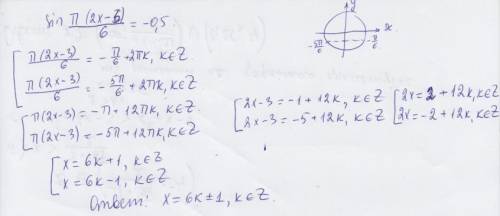 sin π(2x-3)/6 = -0,5
π(2x-3)/6 = -π/6 + 2πk, k∈Z
π(2x-3)/6 = -5π/6 + 2πk, k∈Z
π(2x-3) = -π + 12πk, k∈Z
π(2x-3) = -5π + 12πk, k∈Z.
y
x
-5π/6
-π/6
2x-3 = -1 + 12k, k∈Z
2x-3 = -5 + 12k, k∈Z
2x = 2 + 12k, k∈Z
2x = -2 + 12k, k∈Z.
x = 6k+1, k∈Z
x = 6k-1, k∈Z
Ответ: x = 6k ± 1, k∈Z.